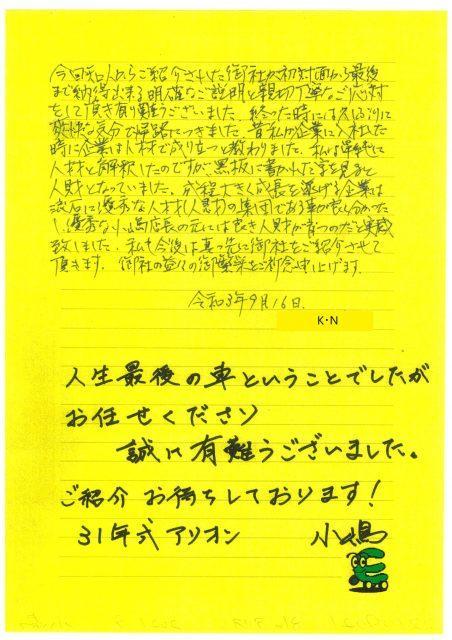 今回知人からご紹介された御社が初対面から最後
まで納得出来る明確なご説明と親切丁寧なご応対
をして頂き有り難うございました。終った時には久しぶりに
爽快な気分で帰路につきました。昔私が企業に入社した
時に企業は人材で成り立つと教わりました。私は単純に
人材と解釈したのですが、黒板に書かれた字を見ると
人財となっていました。成程大きく成長を遂げる企業は
流石に優秀な人材(人財)の集団である事が良く分かった
し、優秀な小嶋店長の元には良き人財が育つのだと実感
致しました。私も今後は真っ先に御社をご紹介させて
頂きます。御社の益々の御繁栄をご祈念申上げます。
令和3年9月16日.
K・N
人生最後の車ということでしたが
お任せくださり
誠に有難うございました。
ご紹介 お待ちしております!
31年式アリオン 小嶋